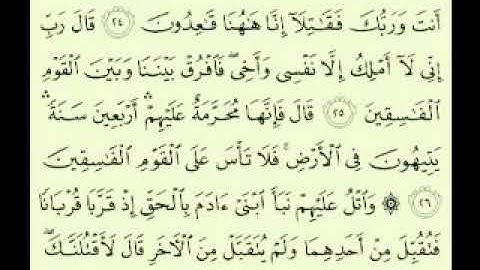 أَنتَ وَرَبُّكَ فَقَٰتِلَآ إِنَّا هَٰهُنَا قَٰعِدُونَ ٢٤ قَالَ رَبِّ
إِنِّى لَآ أَمْلِكُ إِلَّا نَفْسِى وَأَخِى ۖ فَٱفْرُقْ بَيْنَنَا وَبَيْنَ ٱلْقَوْمِ
ٱلْفَٰسِقِينَ ٢٥ قَالَ فَإِنَّهَا مُحَرَّمَةٌ عَلَيْهِمْ ۛ أَرْبَعِينَ سَنَةً ۛ
يَتِيهُونَ فِى ٱلْأَرْضِ ۚ فَلَا تَأْسَ عَلَى ٱلْقَوْمِ ٱلْفَٰسِقِينَ
٢٦ ۞ وَٱتْلُ عَلَيْهِمْ نَبَأَ ٱبْنَىْ ءَادَمَ بِٱلْحَقِّ إِذْ قَرَّبَا قُرْبَانًا
فَتُقُبِّلَ مِنْ أَحَدِهِمَا وَلَمْ يُتَقَبَّلْ مِنَ ٱلْءَاخَرِ قَالَ لَأَقْتُلَنَّكَ ۖ